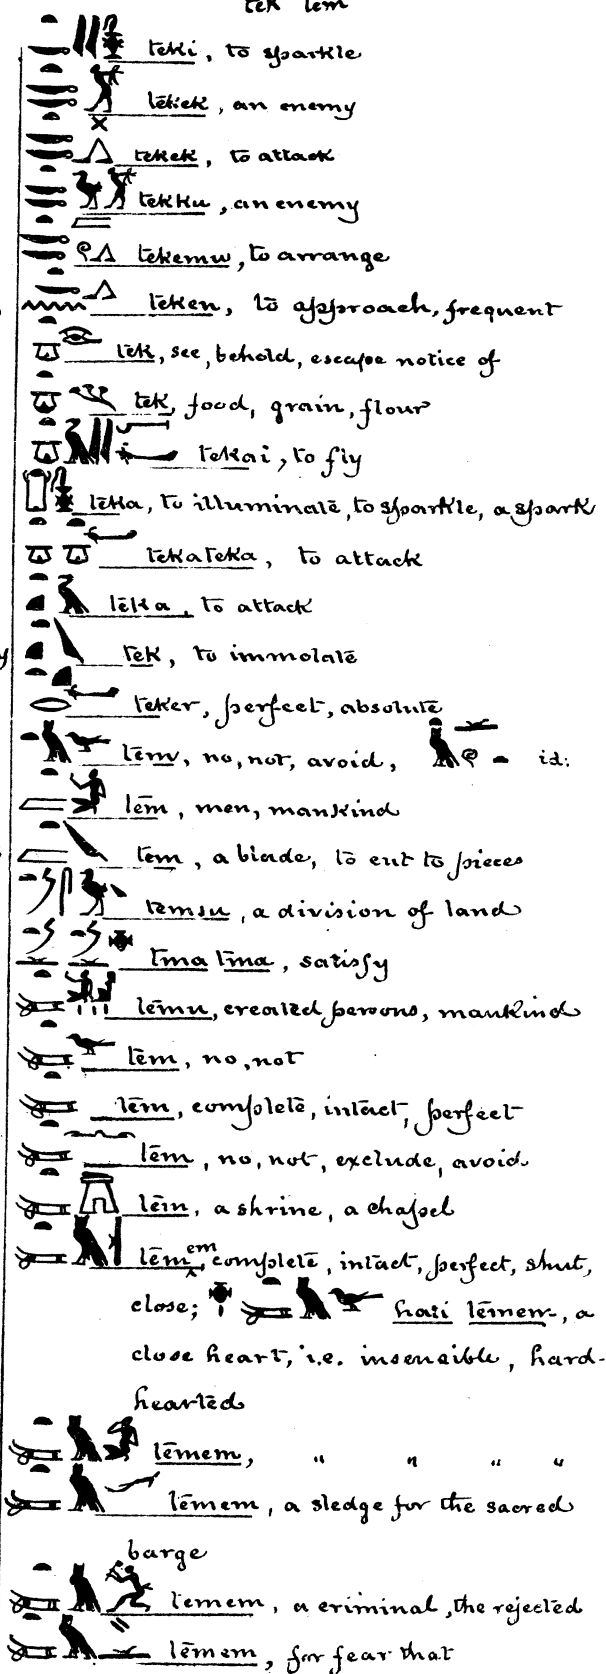 tek tem
teki, to sparkle
tekek, an enemy
tekek, to attack
tekku, an enemy
tekemu, to arrange
teken, to approach, frequent
tek, see, behold, escape notice of
tek, food, grain, flour
tekai, to fly
teka, to illuminate, to sparkle, a spark
tekateka, to attack
teka, to attack
tek, to immolate
teker, perfect, absolute
tem, no, not, avoid, id:
tem, men, mankind
tem, a blade, to cut to pieces
temsu, a division of land
tma tma, satisfy
temu, created persons, mankind
tem, no, not
tem, complete, intact, perfect
tem, no, not, exclude, avoid
tem, a shrine, a chapel
temem, complete, intact, perfect, shut,
close; hati temem, a
close heart, i.e. insensible, hard-
hearted
temem, " " " "
temem, a sledge for the sacred
barge
temem, a criminal, the rejected
temem, for fear that